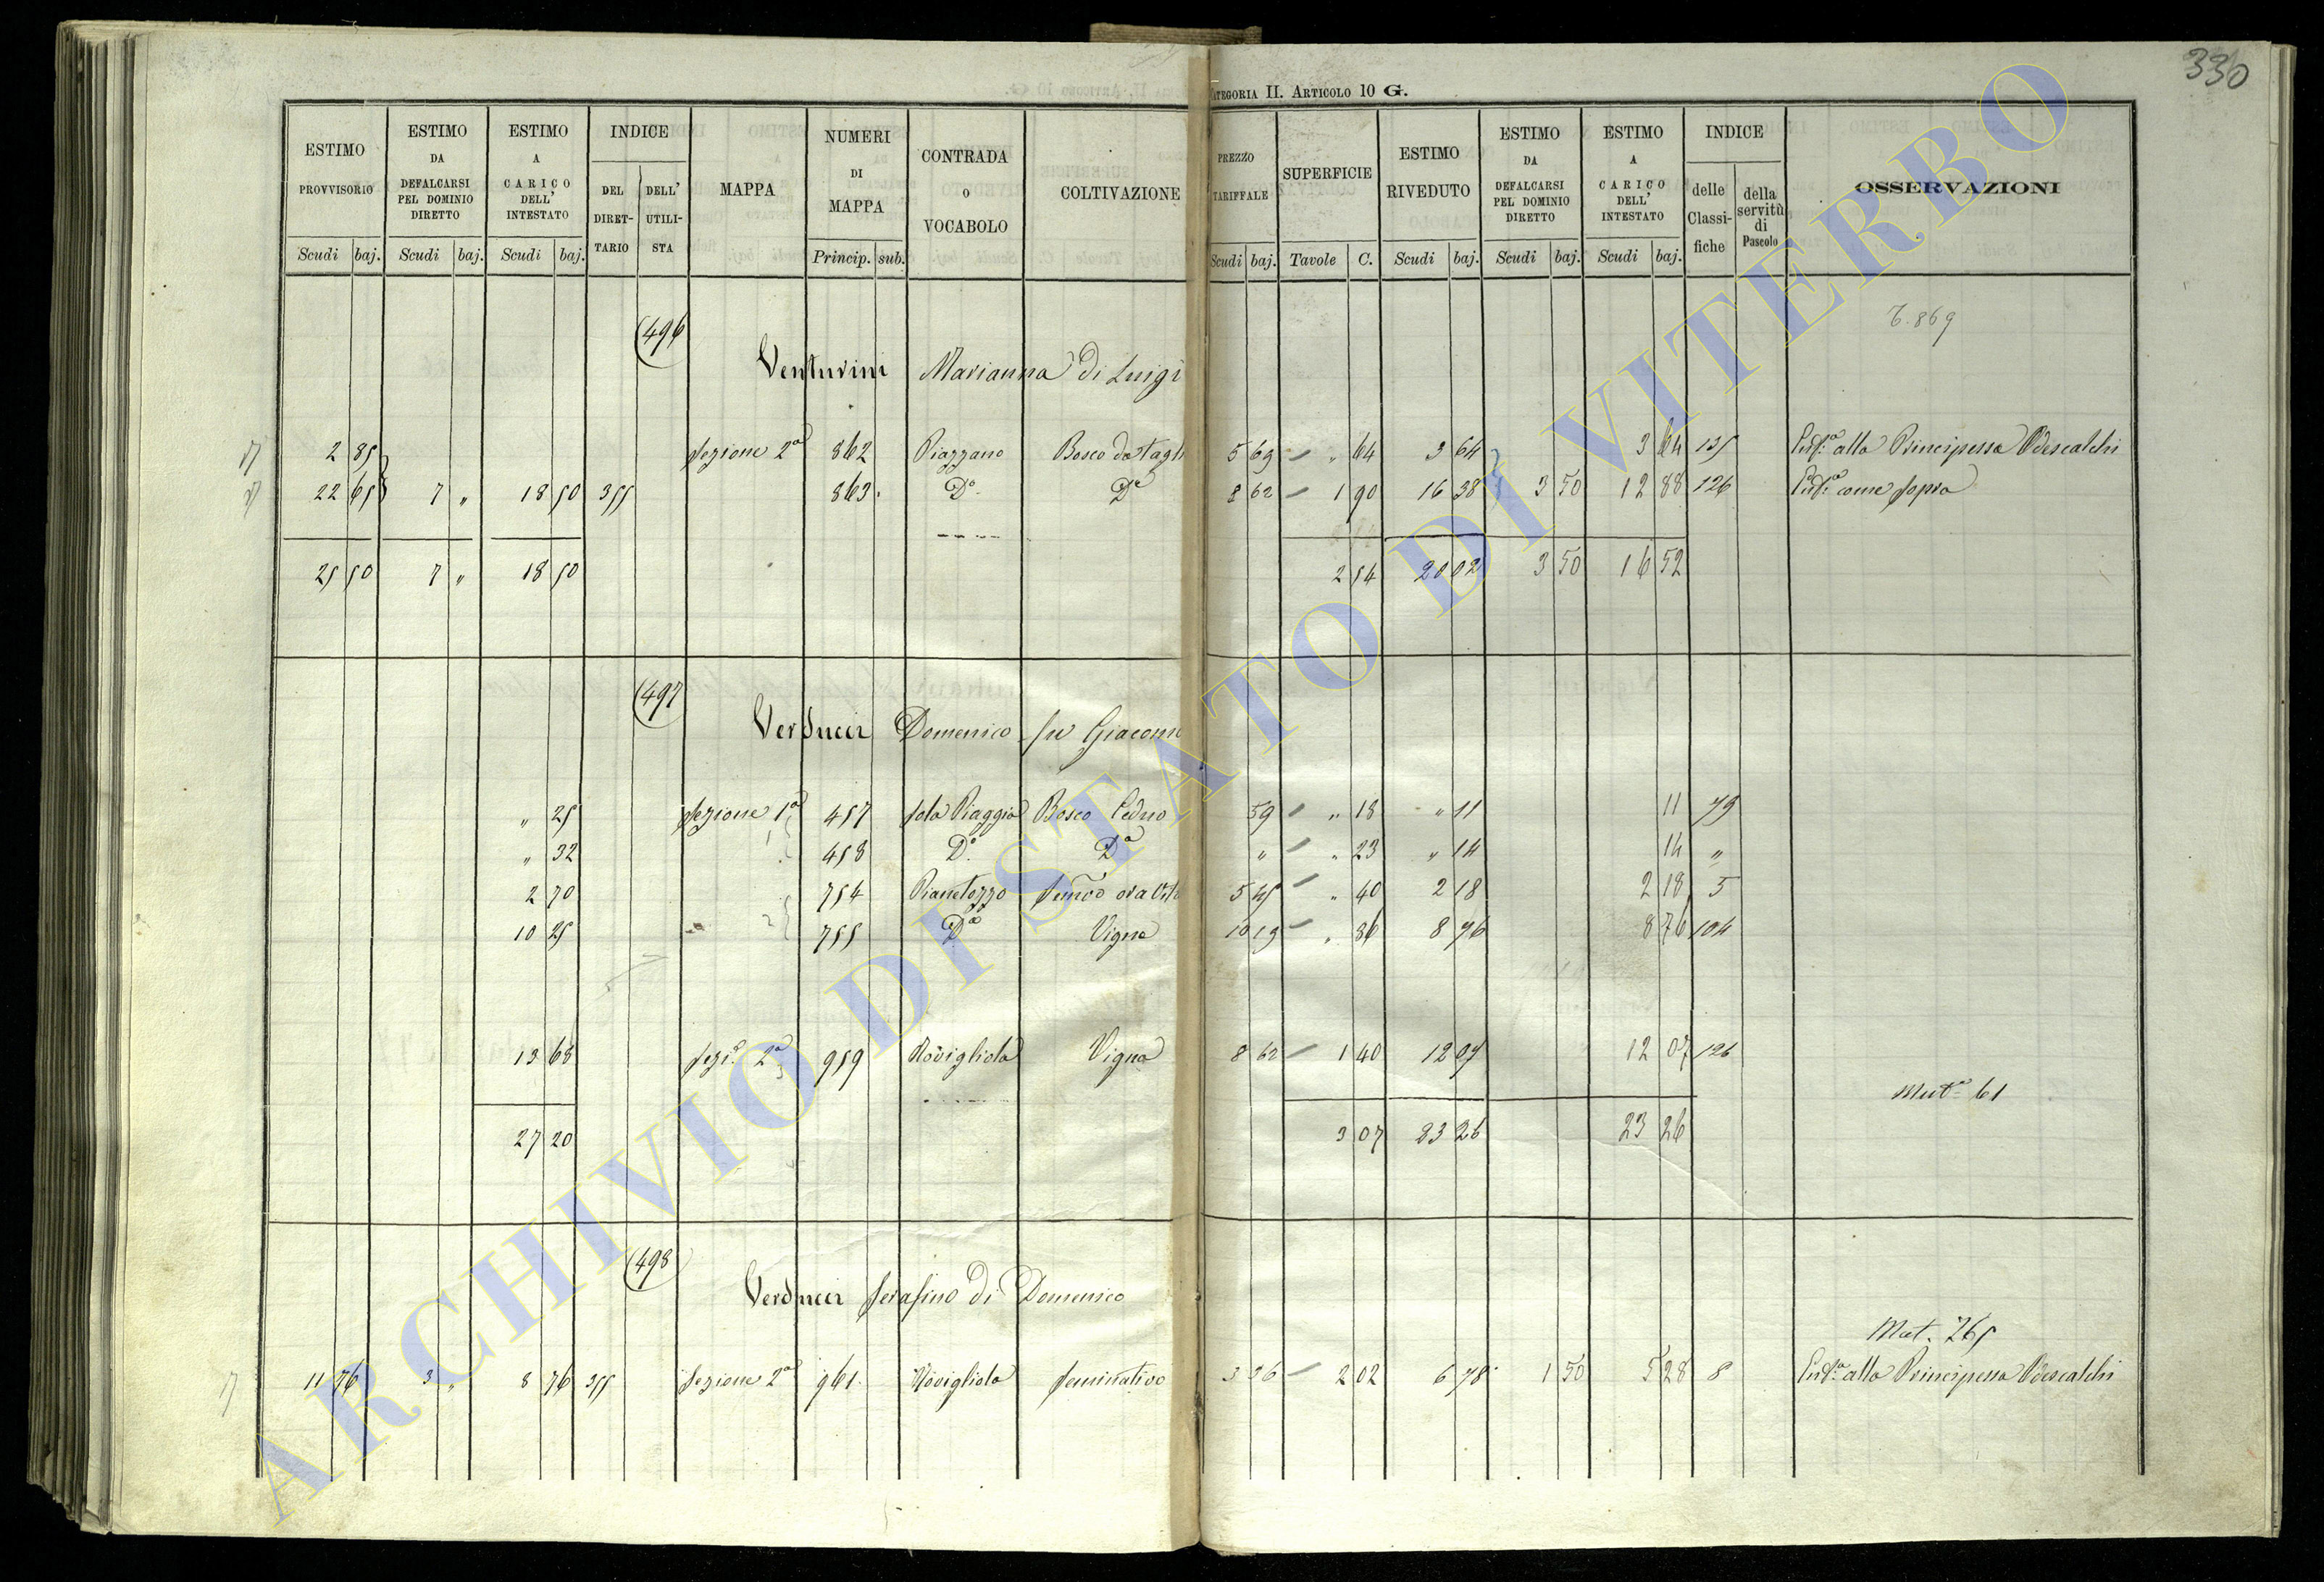 330
CATEGORIA II. ARTICOLO 10 G.
ESTIMO PROVVISORIO Scudi baj.
ESTIMO DA DEFALCARSI PEL DOMINIO DIRETTO Scudi baj.
ESTIMO A CARICO DELL' INTESTATO Scudi baj.
INDICE DEL DIRETTARIO DELL' UTILISTA
MAPPA
NUMERI DI MAPPA Princip. sub.
CONTRADA O VOCABOLO
COLTIVAZIONE
PREZZO TARIFFALE Scudi baj.
SUPERFICIE Tavole C.
ESTIMO RIVEDUTO Scudi baj.
ESTIMO DA DEFALCARSI PEL DOMINIO DIRETTO Scudi baj.
ESTIMO A CARICO DELL' INTESTATO Scudi baj.
INDICE delle Classifiche della servitù di Pascolo
OSSERVAZIONI
496
Venturini Marianna di Luigi
2 85 Sezione 2ª 862 Piazzano Bosco da tagli 5 69 " 64 3 64 3 64 125 Enf.ª alla Principessa Odescalchi
22 65 7 " 18 50 355 863 Dº Dº 8 62 1 90 16 38 3 50 12 88 126 Enf.ª come sopra
25 50 7 " 18 50 2 54 20 02 3 50 16 52
497
Verducci Domenico fu Giacomo
" 25 Sezione 1ª 457 Piaggia Bosco Ceduo 59 " 18 " 11 11 79
" 32 458 Dº Dº " " 23 " 14 14 "
2 70 754 Pianetozzo 5 45 " 40 2 18 2 18 5
10 25 755 Dº Vigna 10 19 " 86 8 76 8 76 104
13 68 Sezi.e 2ª 959 Rovigliola Vigna 8 62 1 40 12 07 12 07 126
Mut.ª 61
27 20 3 07 23 26 23 26
498
Verducci Serafino di Domenico
Mut. 265
11 76 3 " 8 76 355 Sezione 2ª 961 Rovigliola Seminativo 3 36 2 02 6 78 1 50 5 28 8 Enf.ª alla Principessa Odescalchi
ARCHIVIO DI STATO DI VITERBO